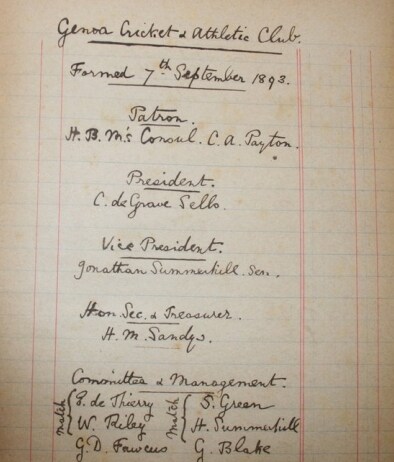 Genoa Cricket & Athletic Club.
Formed 7th September 1893.
Patron.
H. B. M's Consul. C. A. Payton.
President.
C. de Grave Sells.
Vice President.
Jonathan Summerhill. Sen.
Hon. Sec. & Treasurer.
H. M. Sandys.
Committee & Management.
match { E. de Thierry match { S. Green
W. Riley H. Summerhill
G. D. Fawcus G. Blake